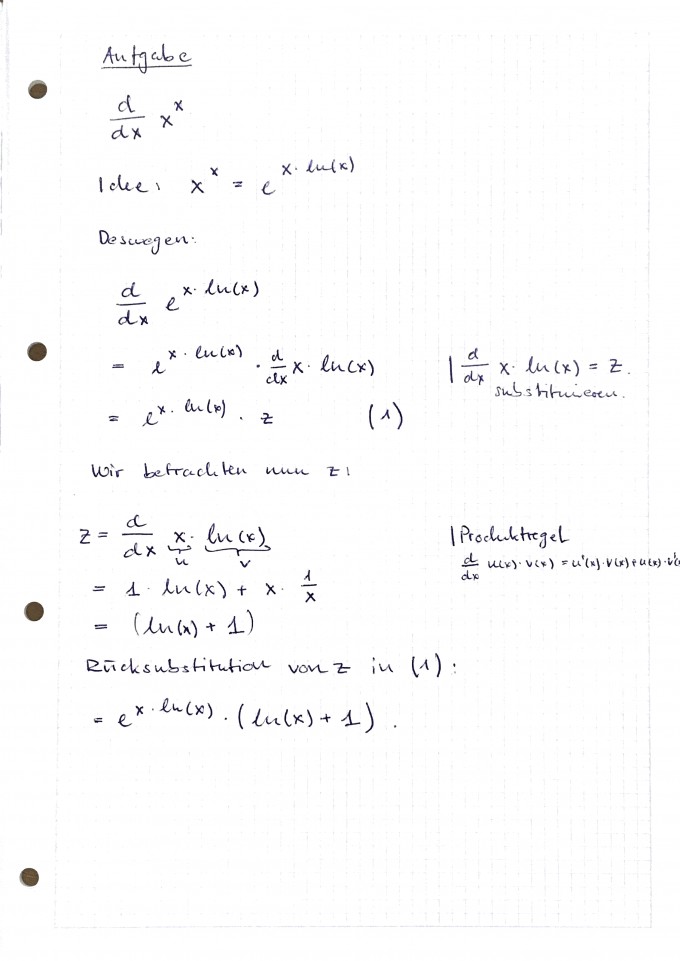 Aufgabe
d/dx x^x
Idee: x^x = e^(x · ln(x))
Deswegen:
d/dx e^(x · ln(x))
= e^(x · ln(x)) · d/dx x · ln(x) | d/dx x · ln(x) = z.
substituieren.
= e^(x · ln(x)) · z (1)
Wir betrachten nun z:
z = d/dx x · ln(x) | Produktregel
u v
d/dx u(x) · v(x) = u'(x) · v(x) + u(x) · v'(
= 1 · ln(x) + x · 1/x
= (ln(x) + 1)
Rücksubstitution von z in (1):
= e^(x · ln(x)) · (ln(x) + 1).